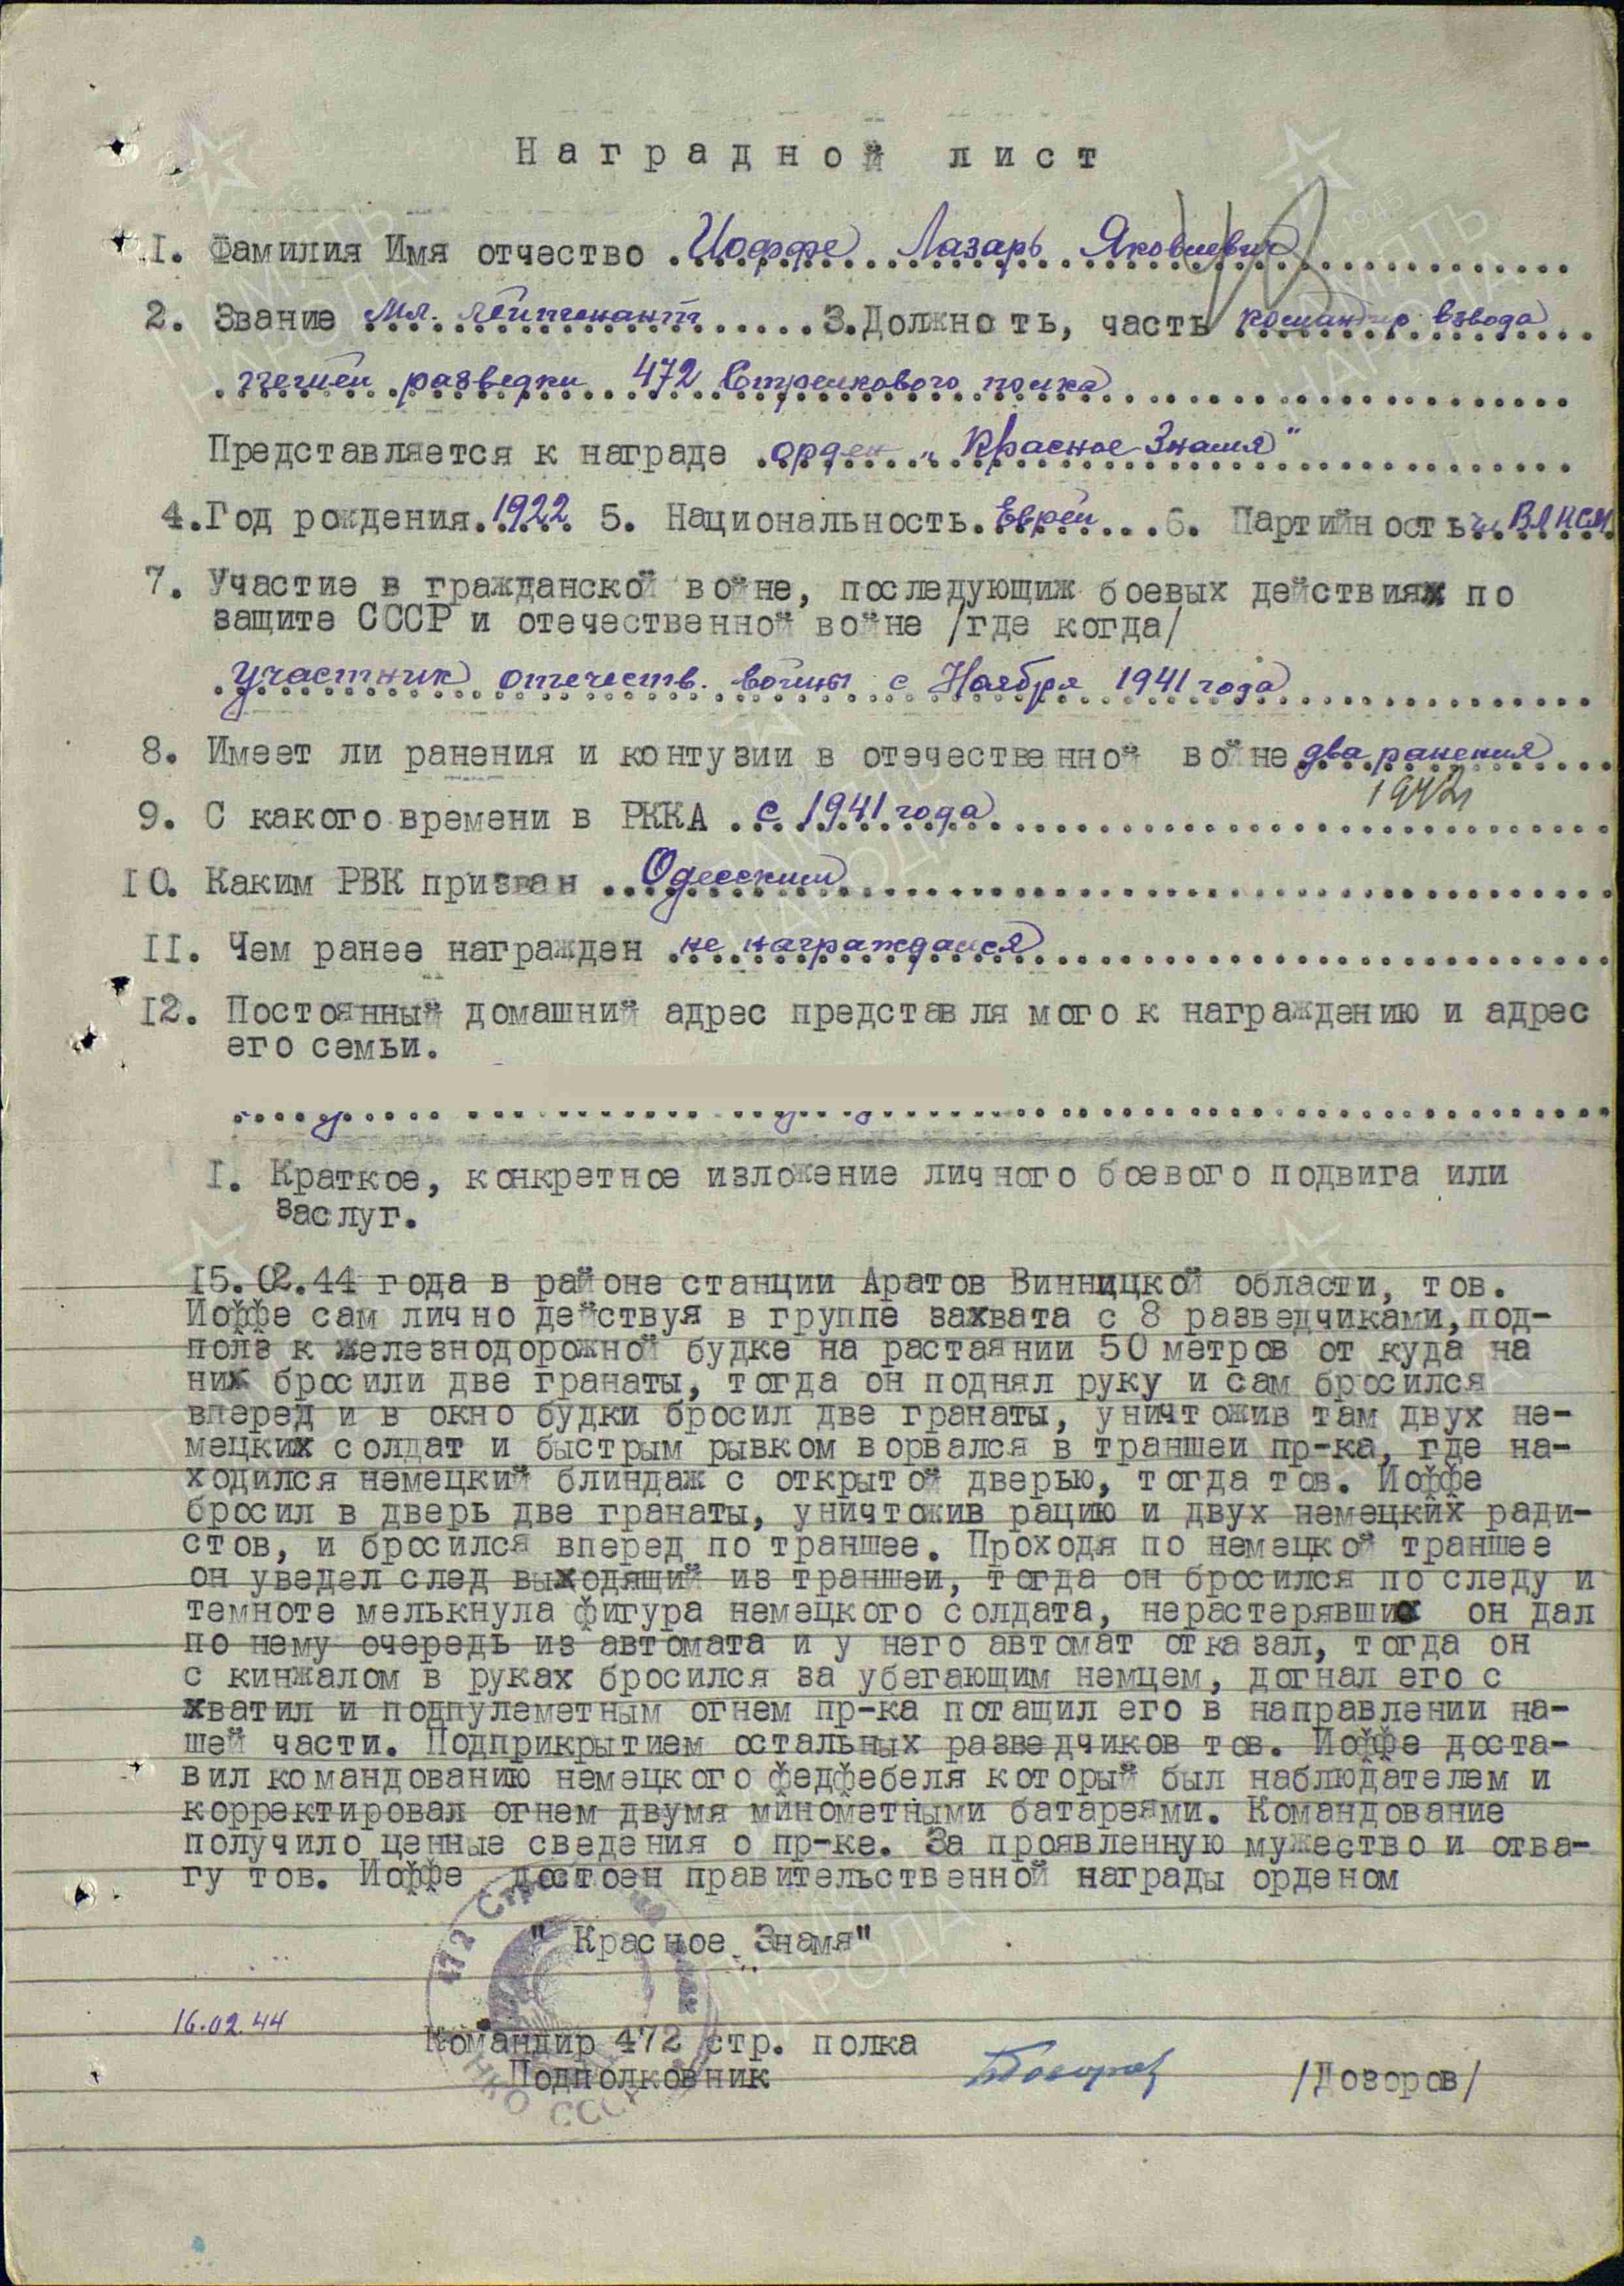 Наградной лист
1. Фамилия Имя отчество Иоффе Лазарь Яковлевич
2. Звание мл. лейтенант 3. Должность, часть командир взвода
пешей разведки 472 Стрелкового полка
Представляется к награде орден „Красное Знамя"
4. Год рождения 1922 5. Национальность Еврей 6. Партийность чл. ВЛКСМ
7. Участие в гражданской войне, последующиж боевых действиях по
защите СССР и отечественной войне /где когда/
участник отечеств. войны с Ноября 1941 года
8. Имеет ли ранения и контузии в отечественной войне два ранения
1942
9. С какого времени в РККА с 1941 года
10. Каким РВК призван Одесским
11. Чем ранее награжден не награждался
12. Постоянный домашний адрес представля мого к награждению и адрес
его семьи.
I. Краткое, конкретное изложение личного боевого подвига или
заслуг.
15.02.44 года в районе станции Аратов Винницкой области, тов.
Иоффе сам лично действуя в группе захвата с 8 разведчиками, под-
полз к железнодорожной будке на растаянии 50 метров от куда на
них бросили две гранаты, тогда он поднял руку и сам бросился
вперед и в окно будки бросил две гранаты, уничтожив там двух не-
мецких солдат и быстрым рывком ворвался в траншеи пр-ка, где на-
ходился немецкий блиндаж с открытой дверью, тогда тов. Иоффе
бросил в дверь две гранаты, уничтожив рацию и двух немецких ради-
стов, и бросился вперед по траншее. Проходя по немецкой траншее
он уведел след выходящий из траншеи, тогда он бросился по следу и
темноте мелькнула фигура немецкого солдата, нерастерявшис он дал
по нему очередь из автомата и у него автомат отказал, тогда он
с кинжалом в руках бросился за убегающим немцем, догнал его с
хватил и подпулеметным огнем пр-ка потащил его в направлении на-
шей части. Подприкрытием остальных разведчиков тов. Иоффе доста-
вил командованию немецкого федфебеля который был наблюдателем и
корректировал огнем двумя минометными батареями. Командование
получило ценные сведения о пр-ке. За проявленную мужество и отва-
гу тов. Иоффе достоен правительственной награды орденом
" Красное Знамя"
16.02.44
Командир 472 стр. полка
Подполковник /Дозоров/
472 НКО СССР
ПАМЯТЬ НАРОДА